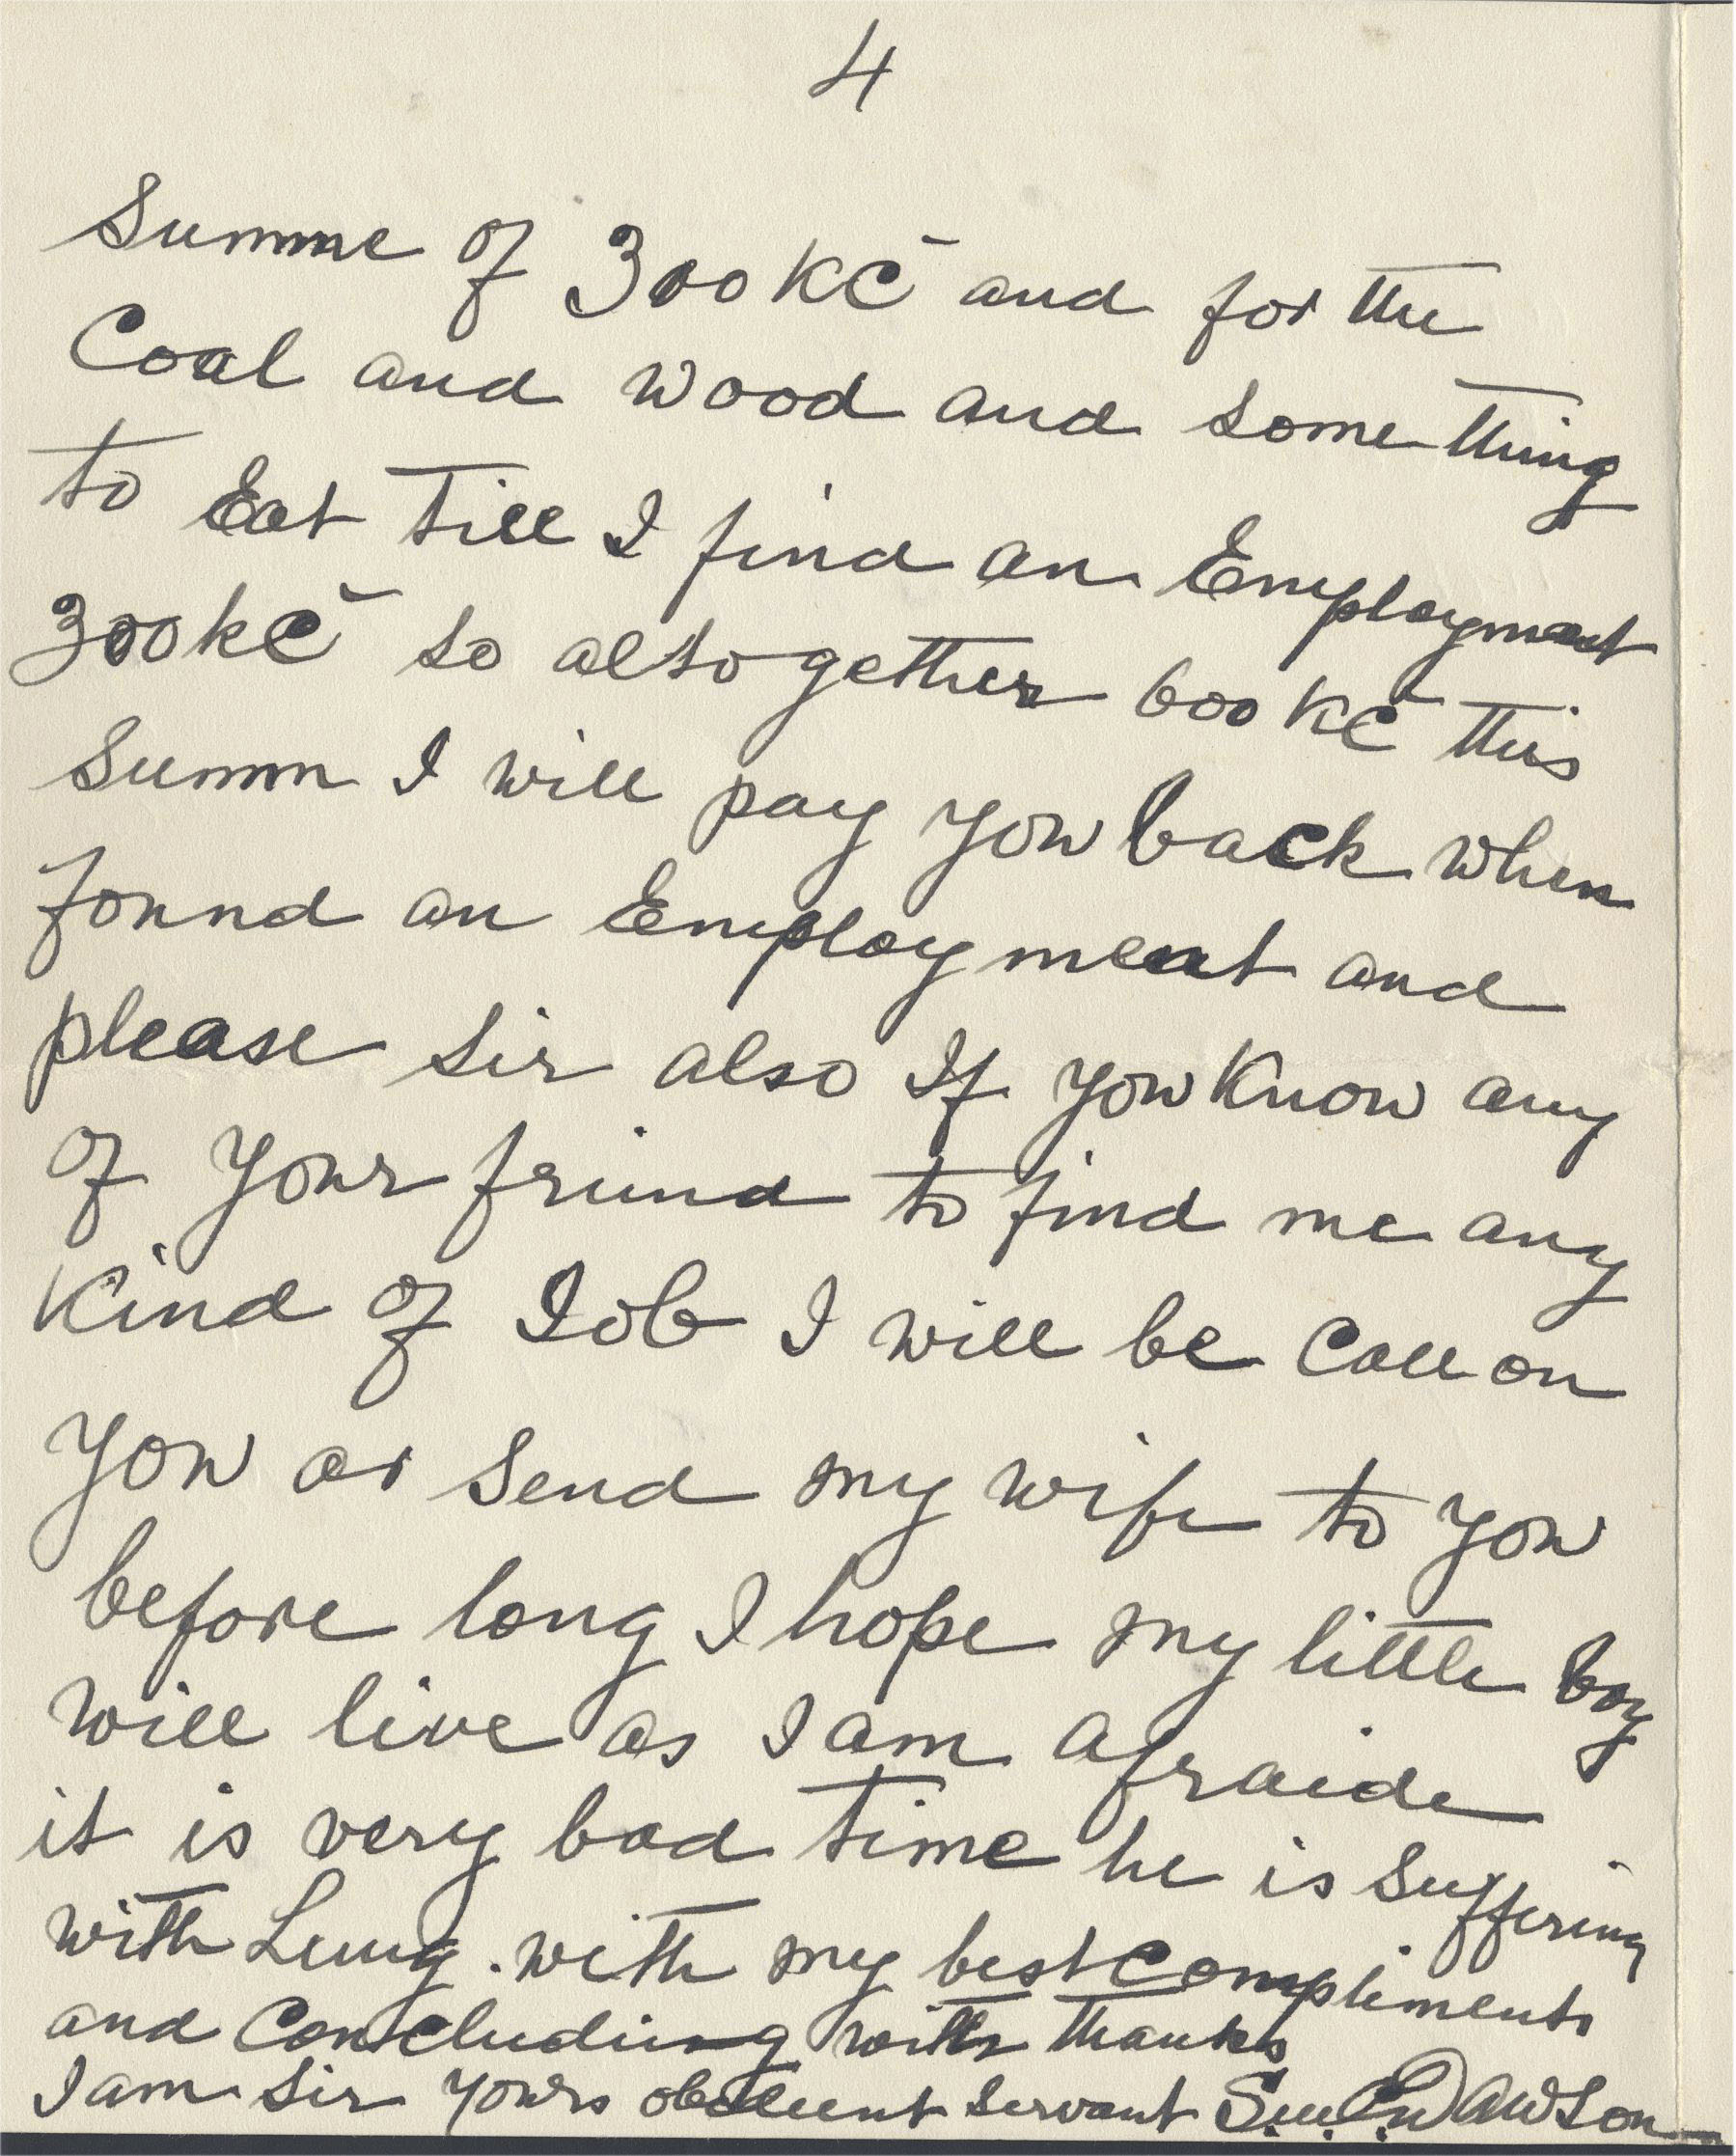 4
Summe of 300 Kč and for the
Coal and Wood and some thing
to Eat Till I find an Employment
300 kč so altogether 600 Kč this
Summ I will pay you back when
found an Employment and
please Sir also If you Know any
of your friend to find me any
Kind of Iob I will be Call on
you or Send my wife to you
before long I hope my little boy
will live as I am afraide
it is very bad time he is Suffering
with Lung. with my best Compliments
and Concluding with thanks
I am Sir yours obedient Servant Dawson